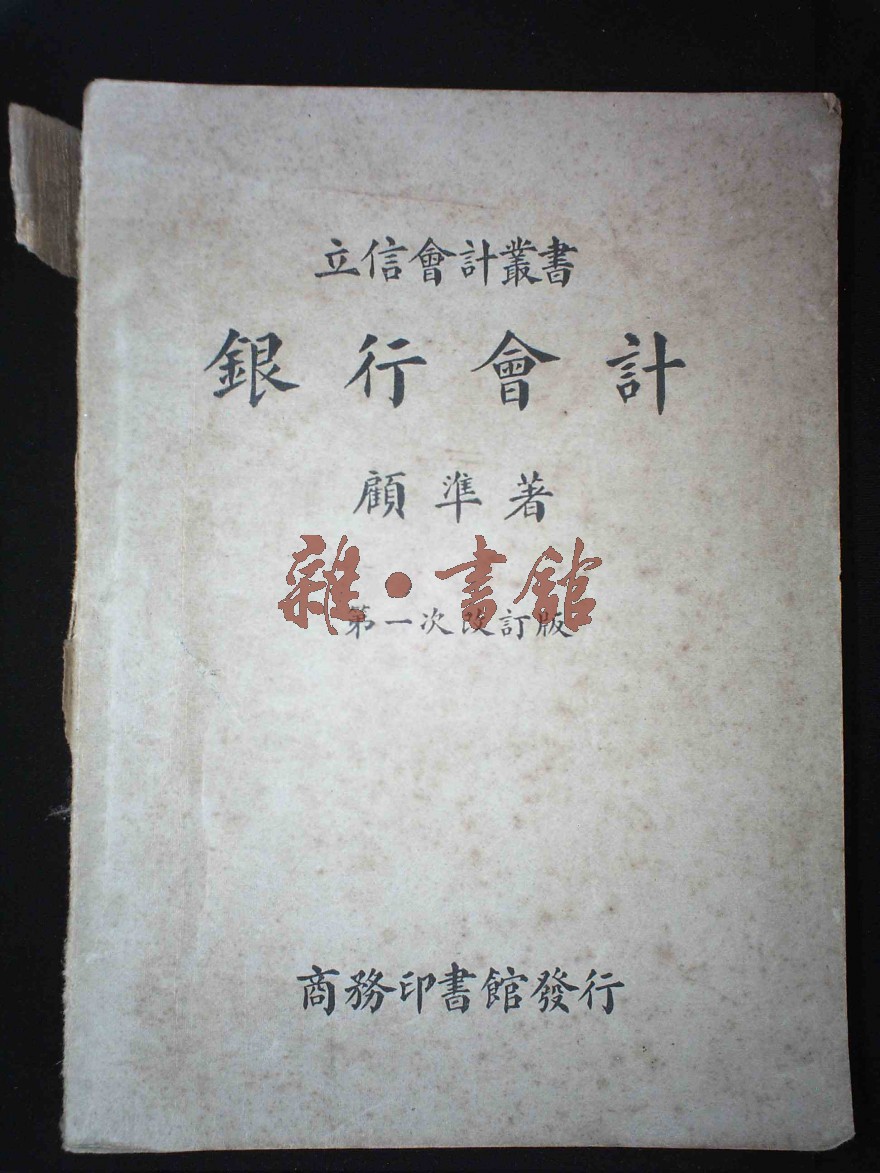 立信會計叢書
銀行會計
顧準著
雜·書館
第一次改訂版
商務印書館發行